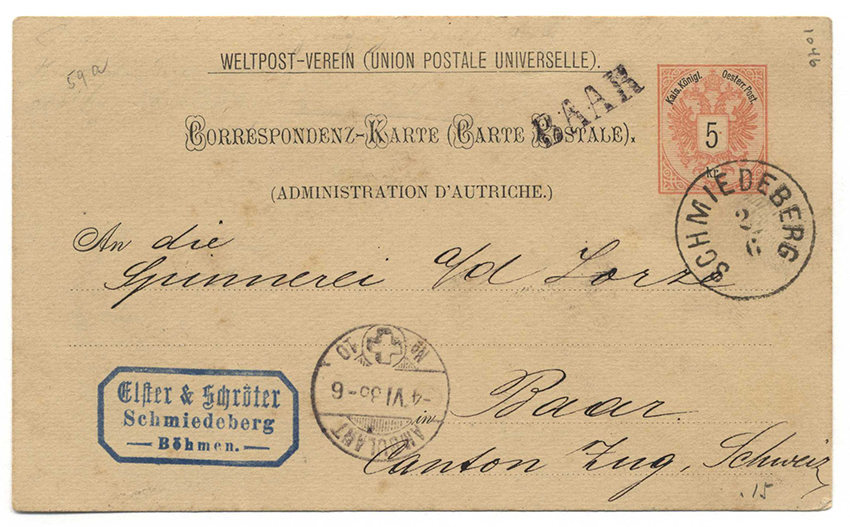 1046
59a
WELTPOST-VEREIN (UNION POSTALE UNIVERSELLE).
BAAR
Kais. Königl. Oesterr. Post.
5
kr.
CORRESPONDENZ-KARTE (CARTE POSTALE).
(ADMINISTRATION D'AUTRICHE.)
SCHMIEDEBERG
An die
Spinnerei a/d Lorze
No 10
-4 VI 86-6
AMBULANT
Elster & Schröter
Schmiedeberg
— Böhmen. —
in Baar.
Canton Zug, Schweiz
.15